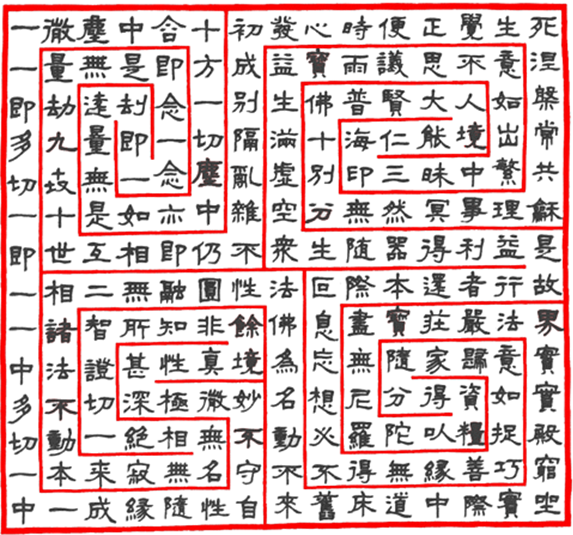 一微塵中含十初發心時便正覺生死
一量無是即方成益寶雨議思不意涅
即劫遠劫念一別生佛普賢大人如槃
多九量即一切隔滿十海仁能境出常
切世無一念塵亂虛別印三昧中繁共
一十是如亦中雜空分無然冥事理龢
即世互相即仍不眾生隨器得利益是
一相二無融圓性法叵際本還者行故
一諸智所知非餘佛息盡寶莊嚴法界
中法證甚性真境為忘無隨家歸意實
多不切深極微妙名想尼分得資如實
切動一絕相無不動必羅陀以糧捉殿
一本來寂無名守不不得無緣善巧窮
中一成緣隨性自來舊床道中際實坐